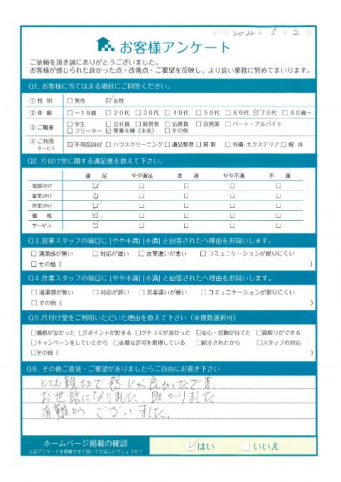 記入日 2022年 5月 2日
お客様アンケート
ご依頼を頂き誠にありがとうございました。
お客様が感じられた良かった点・改善点・ご要望を反映し、より良い業務に努めてまいります。
Q1. お客様に当てはまる項目にご回答ください。
① 性 別 □男性 ☑女性
② 年 齢 □～19歳 □20代 □30代 □40代 □50代 □60代 ☑70代 □80歳～
③ ご職業 □学生 □会社員 □経営者 □公務員 □自営業 □パート・アルバイト
□フリーター ☑専業主婦（主夫） □その他
④ ご利用サービス ☑不用品回収 □ハウスクリーニング □遺品整理 □買取 □外構・エクステリア □解体
Q2. 片付け堂に関する満足度を教えて下さい。
満 足 やや満足 普 通 やや不満 不 満
電話スタッフ ☑ □ □ □ □
営業スタッフ ☑ □ □ □ □
作業スタッフ ☑ □ □ □ □
価 格 ☑ □ □ □ □
サービス ☑ □ □ □ □
Q3. 営業スタッフの項目に [やや不満] [不満] と回答された方へ理由をお伺いします。
□清潔感が無い □対応が遅い □言葉遣いが悪い □コミュニケーションが取りにくい
□その他（ ）
Q4. 作業スタッフの項目に [やや不満] [不満] と回答された方へ理由をお伺いします。
□清潔感が無い □対応が遅い □言葉遣いが悪い □コミュニケーションが取りにくい
□その他（ ）
Q5. 片付け堂をご利用いただいた理由を教えて下さい（※複数選択可）
□価格が安かった □Tポイントが貯まる □クチコミが良かった □安心・信頼が持てた □買取りができる
□キャンペーンをしていたから □必要な許可を取得している □紹介されたから □スタッフの対応
□その他（ ）
Q6. その他ご意見・ご要望がありましたらご自由にお書き下さい
とても親切で感じが良かったです。
お世話になりました。助かりました
有難とうございました。
ホームページ掲載の確認
上記アンケートを掲載させて頂いても宜しいでしょうか？
☑はい □いいえ